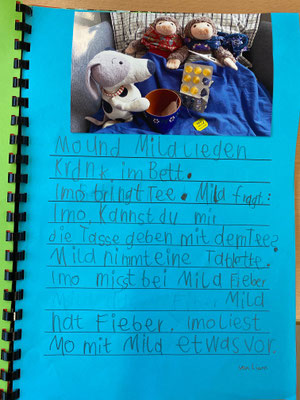 Mo und Mild liegen
Krank im Bett.
Imo bringt Tee. Mild fragt:
Imo, Kannst du mir
die Tasse geben mit dem Tee?
Mild nimmt eine Tablette.
Imo misst bei Mild Fieber
Mild
hat Fieber. Imo liest
Mo mit Mild etwas vor.